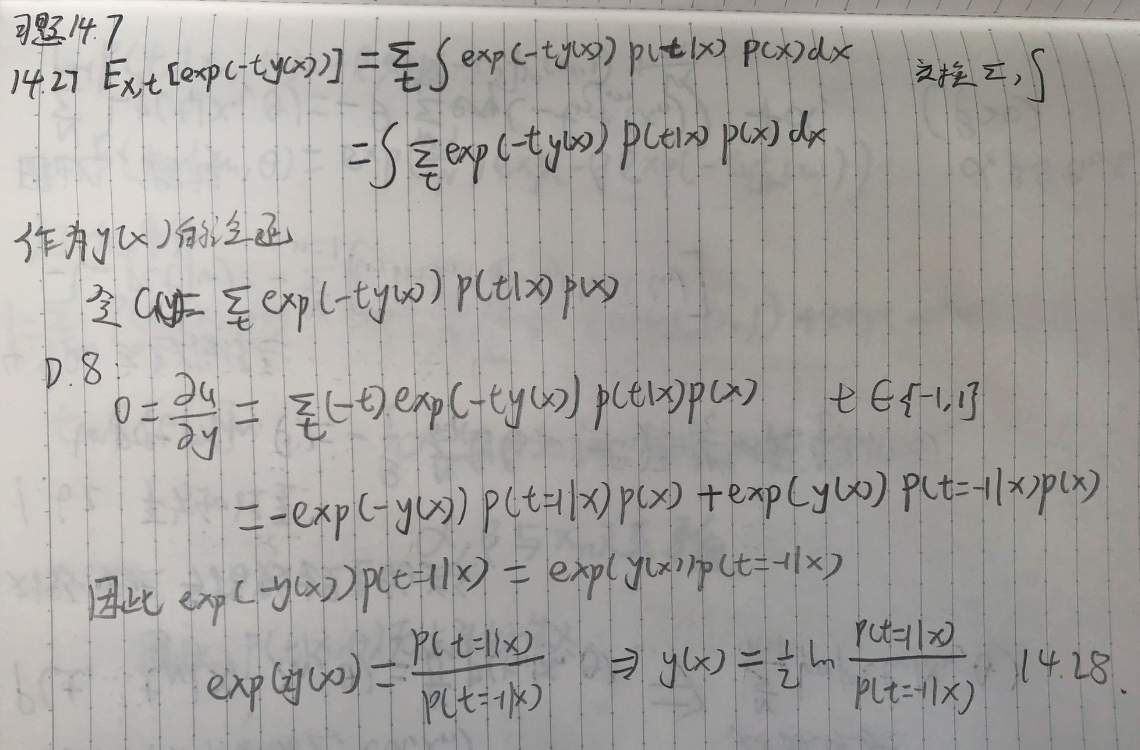 习题14.7
14.27 Ex,t[exp(-ty(x))] = Σt ∫ exp(-ty(x)) p(t|x) p(x)dx 交换Σ,∫
= ∫ Σt exp(-ty(x)) p(t|x) p(x) dx
作为y(x)的泛函
令 G(y)= Σt exp(-ty(x)) p(t|x) p(x)
D.8
0 = ∂G/∂y = Σt (-t) exp(-ty(x)) p(t|x)p(x) t∈{-1,1}
= -exp(-y(x)) p(t=1|x) p(x) + exp(y(x)) p(t=-1|x)p(x)
因此 exp(-y(x))p(t=1|x) = exp(y(x))p(t=-1|x)
exp(2y(x)) = p(t=1|x)/p(t=-1|x) ⇒ y(x) = 1/2 ln p(t=1|x)/p(t=-1|x) 14.28.